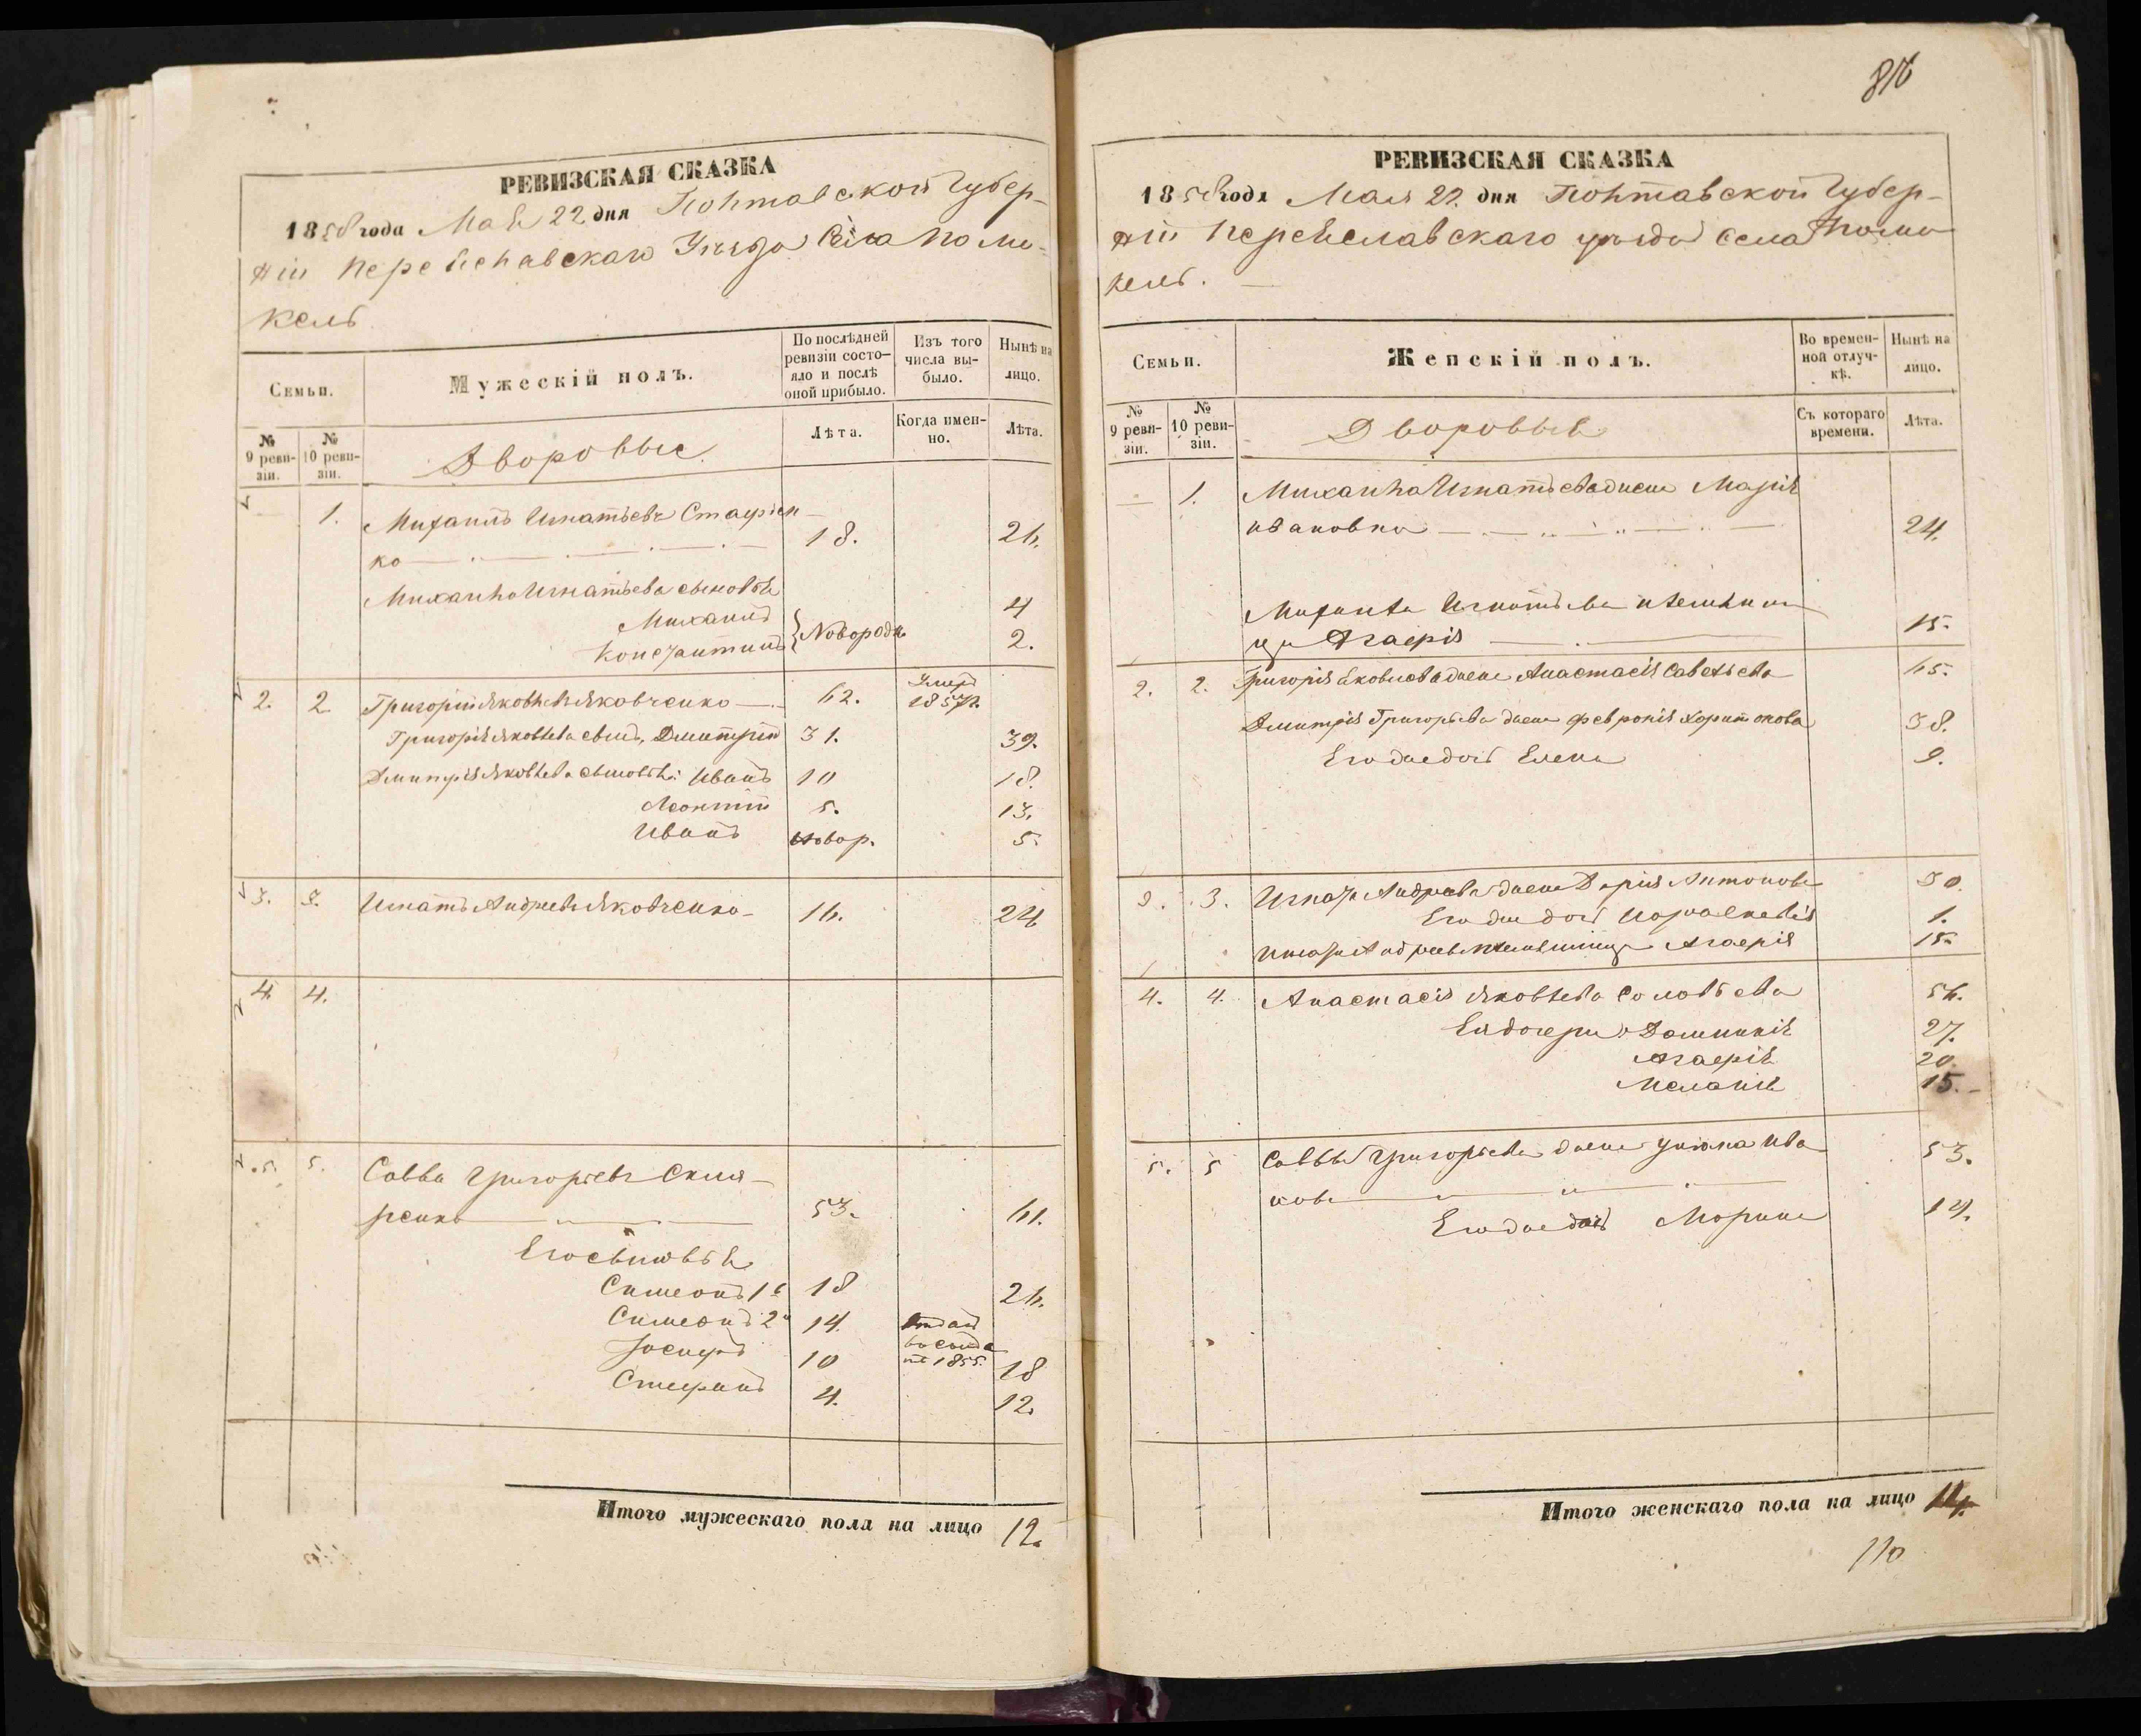 РЕВИЗСКАЯ СКАЗКА
1858 года Мая 22 дня Полтавской Губер-
ніи Переяславскаго Уѣзда Села Помо-
кель
Семьи.
Мужескій полъ.
По послѣдней ревизіи состо-
яло и послѣ оной прибыло.
Изъ того числа вы-
было.
Нынѣ на лицо.
№ 9 реви-
зіи.
№ 10 реви-
зіи.
Дворовые
Лѣта.
Когда имен-
но.
Лѣта.
1. Михаилъ Игнатьевъ Стафіен-
ко 18. 26.
Михаила Игнатьева сыновья
Михаилъ 4
Константинъ } Новорожд. 2.
2. 2 Григорій Яковлевъ Яковченко 62. Умеръ 1857.
Григорія Яковлева сынъ, Дмитрій 31. 39.
Дмитрія Яковлева сыновья: Иванъ 10 18.
Леонтій 5. 13.
Иванъ новор. 5.
3. 3. Игнатъ Андреевъ Яковченко 16. 24
4. 4.
5. 5. Савва Григорьевъ Скля-
ренко 53. 61.
Его сыновья
Симеонъ 1й 18 26.
Симеонъ 2й 14. Отданъ
Іосифъ 10 1855. 18
Стефанъ 4. 12.
Итого мужескаго пола на лицо 12.
816
РЕВИЗСКАЯ СКАЗКА
1858 года Мая 22 дня Полтавской Губер-
ніи Переяславскаго уѣзда села Помо
кель.
Семьи.
Женскій полъ.
Во времен-
ной отлуч-
кѣ.
Нынѣ на лицо.
№ 9 реви-
зіи.
№ 10 реви-
зіи.
Дворовые
Съ котораго времени.
Лѣта.
1. Михаила Игнатьева жена Марія
Ивановна 24.
Михаила Игнатьева племянни
ца Агафія 15.
2. 2. Григорія Яковлева жена Анастасія Савельева 65.
Дмитрія Григорьева жена Февронія Харитонова 38.
Его же дочь Елена 9.
3. 3. Игната Андреева жена Дарія Антонова 30.
Его же дочь Параскевія 1.
Игната Андреева племянница Агафія 15.
4. 4. Анастасія Яковлева Соловьева 56.
Ея дочери: Домникія 27.
Агафія 20.
Меланія 15.
5. 5 Саввы Григорьева жена Ульяна Ива
нова 53.
Его же дочь Марина 14.
Итого женскаго пола на лицо 14.
110